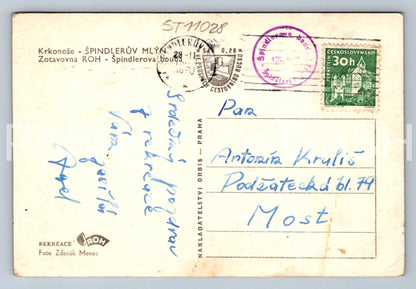 ST11028
Krkonoše - ŠPINDLERŮV MLÝN
Zotavovna ROH - Špindlerova bouda
ŠPINDLERŮV
28.-11.
CESTOVNÍHO RUCHU
Špindlerova bouda
ČESKOSLOVENSKO
30h
Srdečný pozdrav
z rekreace
Vám
zasílá
Pan
Antonín Kruliš
Podžatecká bl. 79
Most.
NAKLADATELSTVÍ ORBIS - PRAHA
REKREACE ROH
Foto Zdeněk Menec